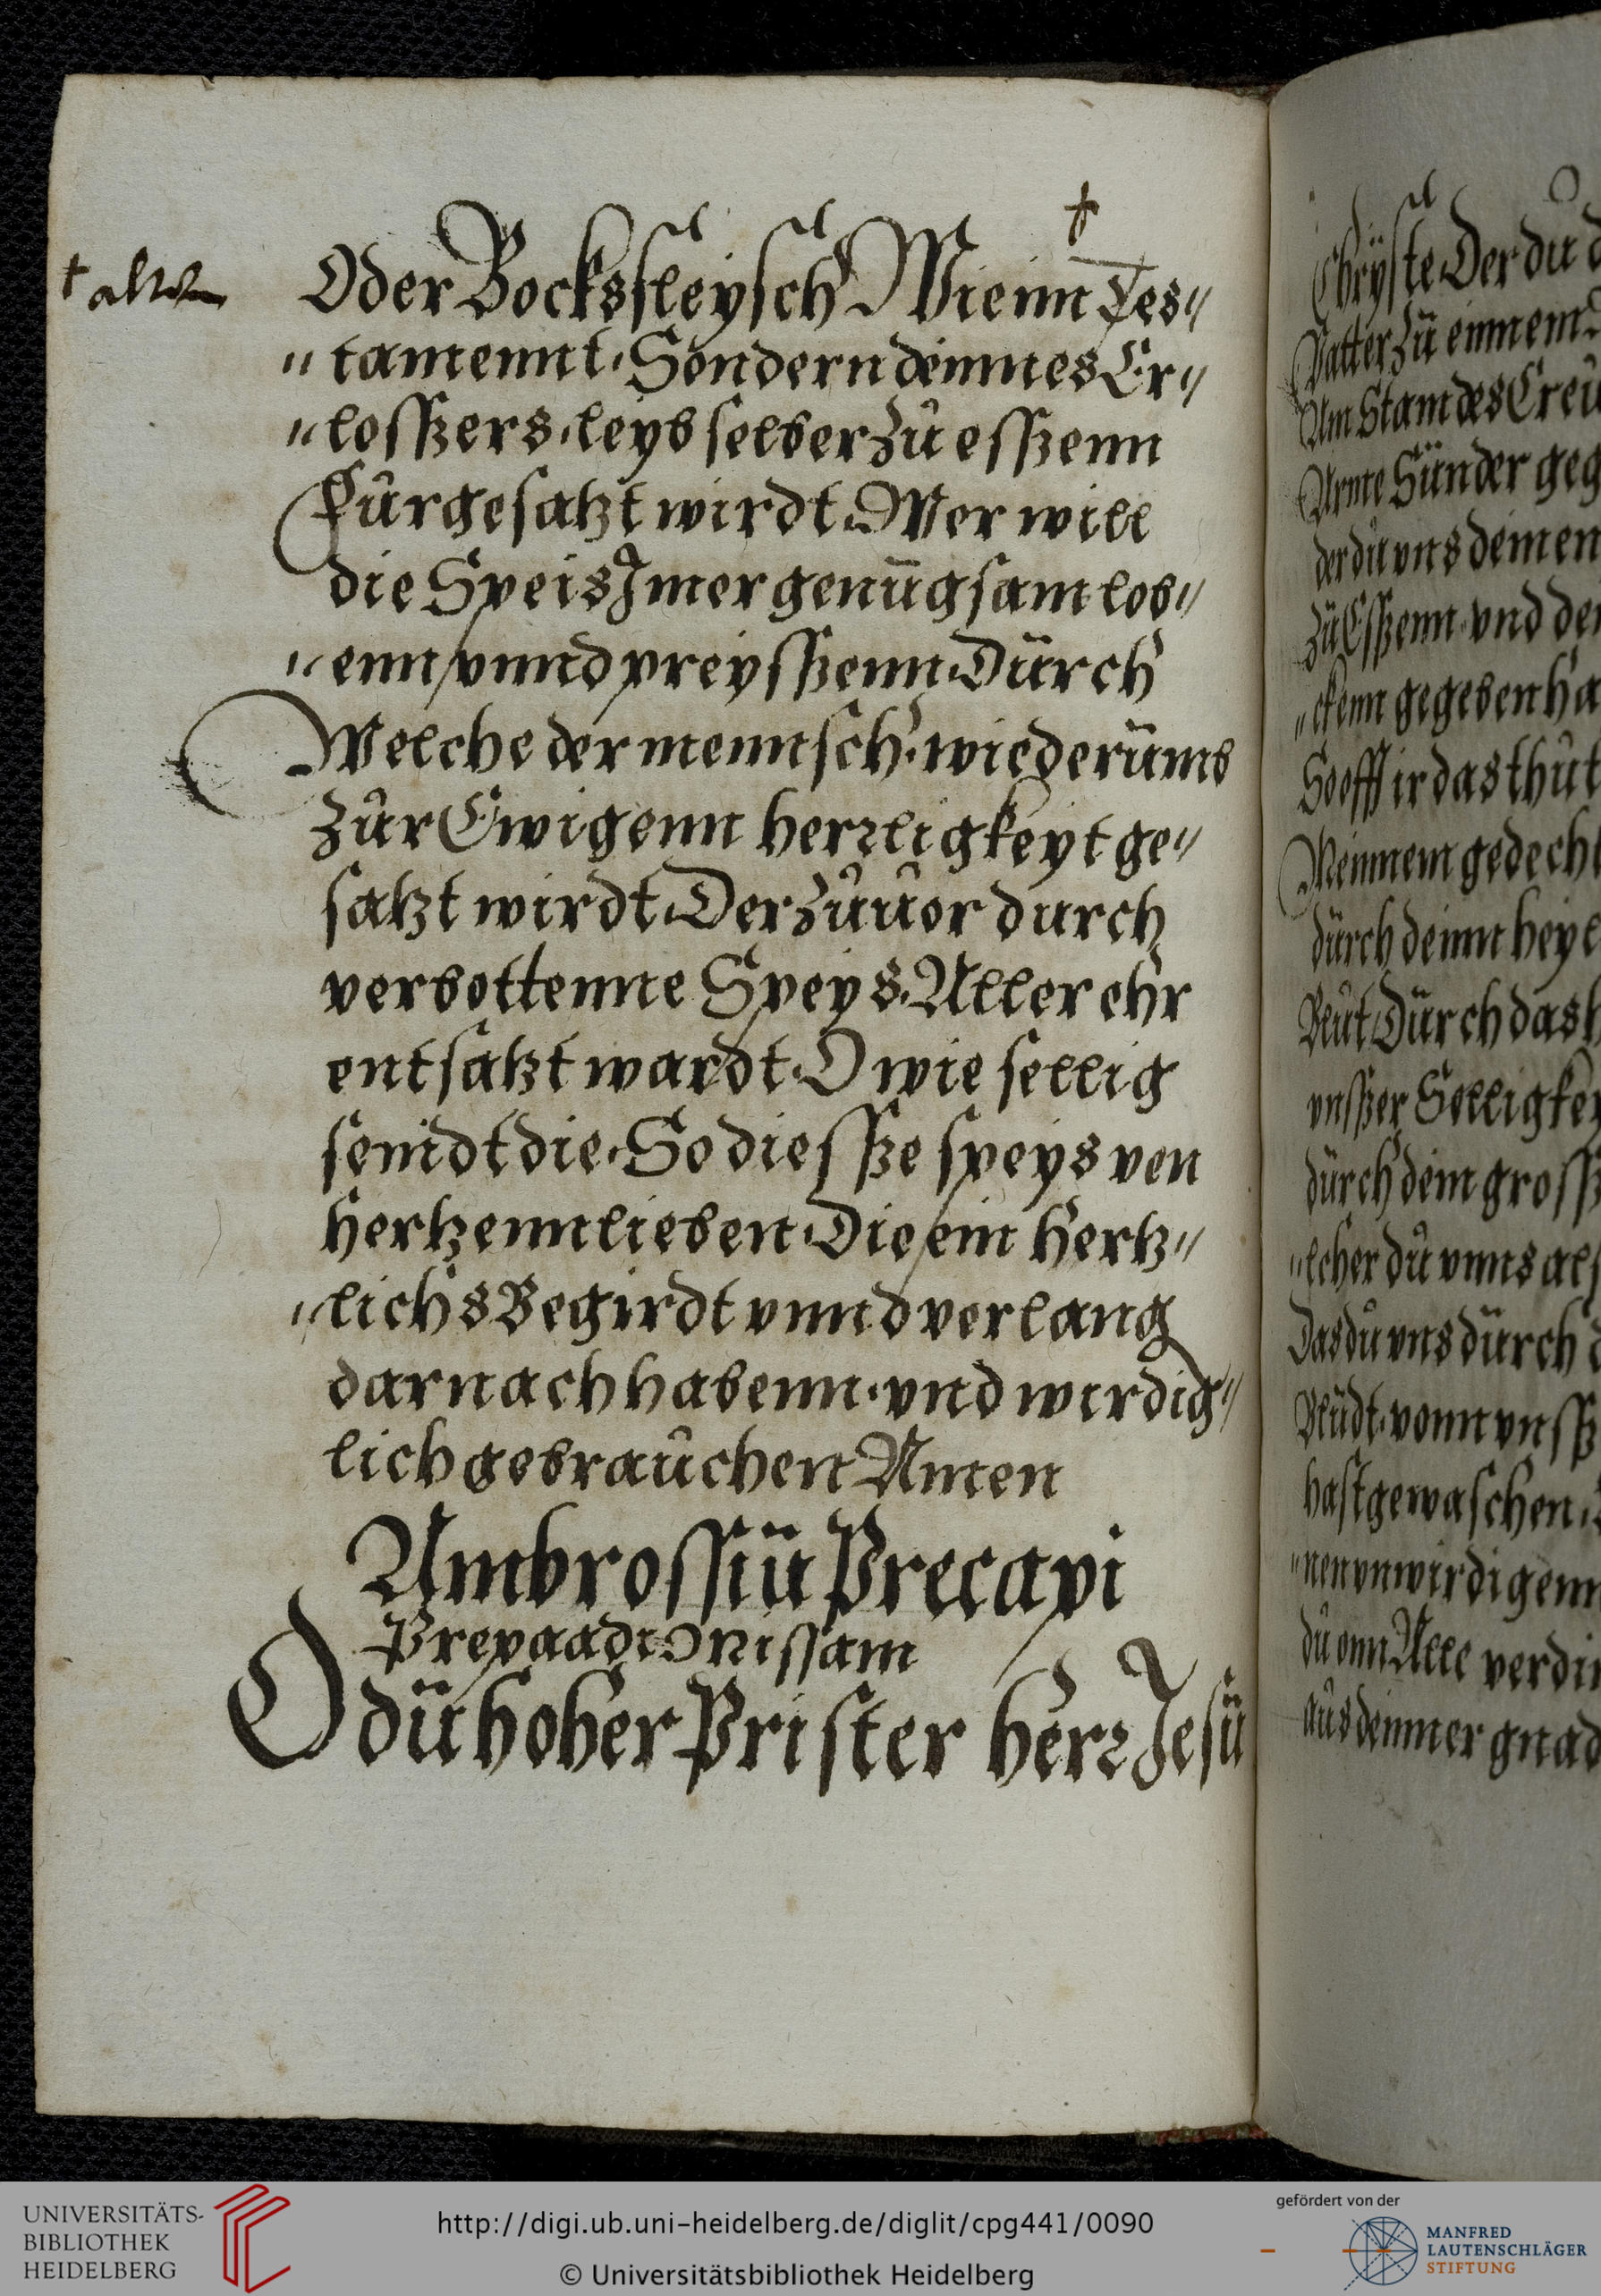 † alten
†
Oder Bocksfleysch Wie inn Tes„
„tamennt. Sondern deinnes Er„
„losßzers leyb selber Zů esßzenn
Fůrgesatzt wirdt. Wer will
die Speis Jmer genügsam lob„
„enn vnnd preysßzenn. Dürch
Welche der mennsch. wiederümb
Zůr Ewigenn herrligkeyt ge„
satzt wirdt. Der Zůuor durch
verbottenne Speys. Aller ehr
entsatzt wardt. O wie sellig
seindt die. So diesßze speys von
hertzenn lieben. Die ein hertz„
„lichs Begirdt vnnd verlang
darnach habenn. vnd wirdig„
lich gebraůchen Amen
Ambrossiü Precapi
Prepaadi Missam
O dü hoher Prister herr Jesü
Chryste Der du
Vatter Zů einnem
Am Stam des Creü
Arme Sünder geg
der dü vns deinen
Zů Esßzenn. vnd de
„ckenn gegeben ha
So offt ir das thůt
Meinnem gedecht
dürch deinn heyl
Blůt Dürch das h
vnsßzer Selligke
dürch dein grosß
„lcher dü vnns als
Das dů vns dürch
Blüdt. vonn vnsß
hast gewaschen.
„nen vnwirdigenn
dů onn Alle verdi
aůs deinner gnad
UNIVERSITÄTS-
BIBLIOTHEK
HEIDELBERG
http://digi.ub.uni-heidelberg.de/diglit/cpg441/0090
© Universitätsbibliothek Heidelberg
gefördert von der
MANFRED
LAUTENSCHLÄGER
STIFTUNG